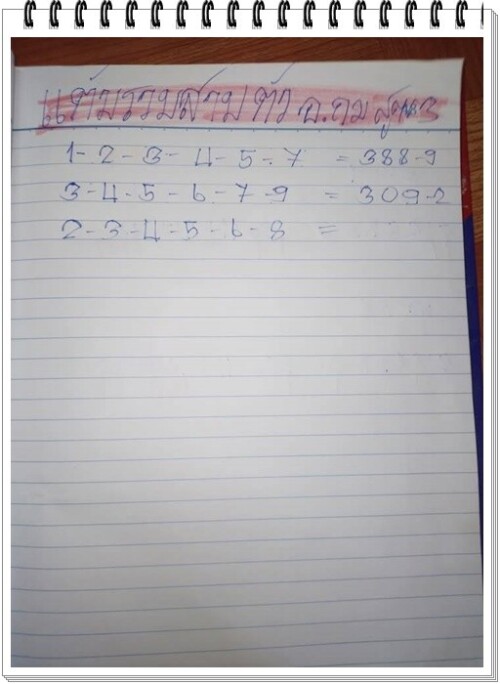 แต้มรวมสามตัว อ.ถม สูตร3
1-2-3-4-5-7 = 388-9
3-4-5-6-7-9 = 309-2
2-3-4-5-6-8 =